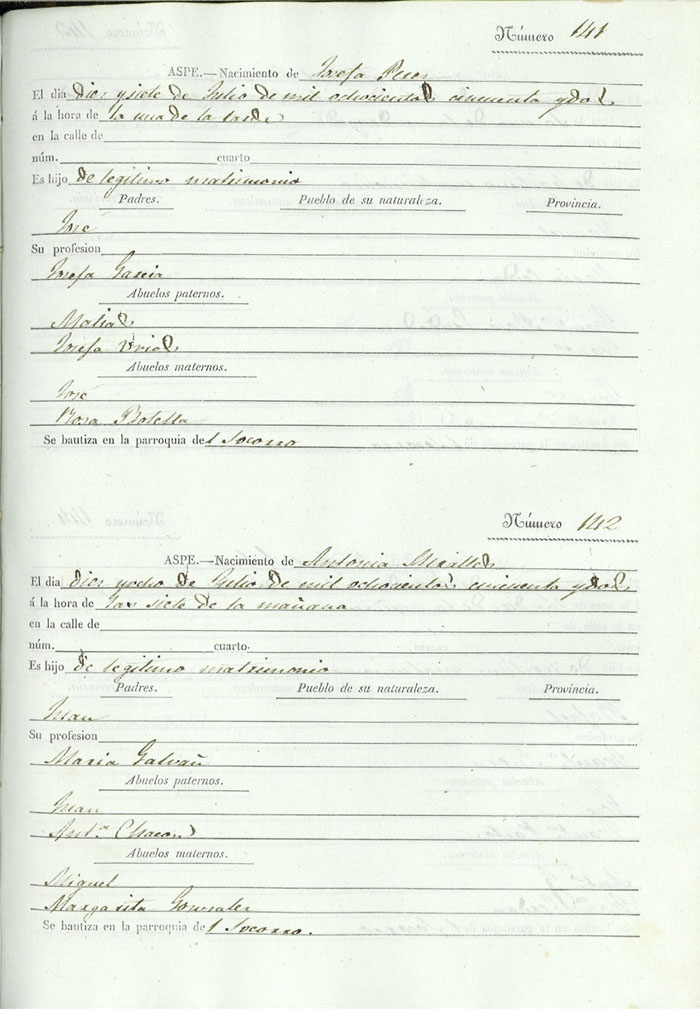 Número 141
ASPE.—Nacimiento de Josefa Peres
El dia dies ysiete de Julio de mil ochocientos cincuenta ydos
á la hora de la una de la tarde
en la calle de
núm. cuarto
Es hijo de legitimo matrimonio
Padres. Pueblo de su naturaleza. Provincia.
José
Su profesion
Josefa Garcia
Abuelos paternos.
Matias
Josefa Urios
Abuelos maternos.
José
Rosa Botella
Se bautiza en la parroquia del Socorro
Número 142
ASPE.—Nacimiento de Antonia Miralles
El dia dies yocho de Julio de mil ochocientos cincuenta ydos
á la hora de las siete de la mañana
en la calle de
núm. cuarto.
Es hijo de legitimo matrimonio
Padres. Pueblo de su naturaleza. Provincia.
Juan
Su profesion
Maria Galvañ
Abuelos paternos.
Juan
Antª Chacon
Abuelos maternos.
Miguel
Margarita Gonsales
Se bautiza en la parroquia del Socorro.